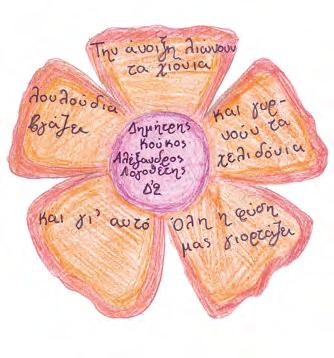 Την άνοιξη λιώνουν
τα χιόνια
και γυρ-
νούν τα
χελιδόνια
Όλη η φύση
μας γιορτάζει
και γι' αυτό
λουλούδια
βγάζει
Δημήτρης
Κούκος
Αλέξανδρος
Λαγουθέτης
Δ2